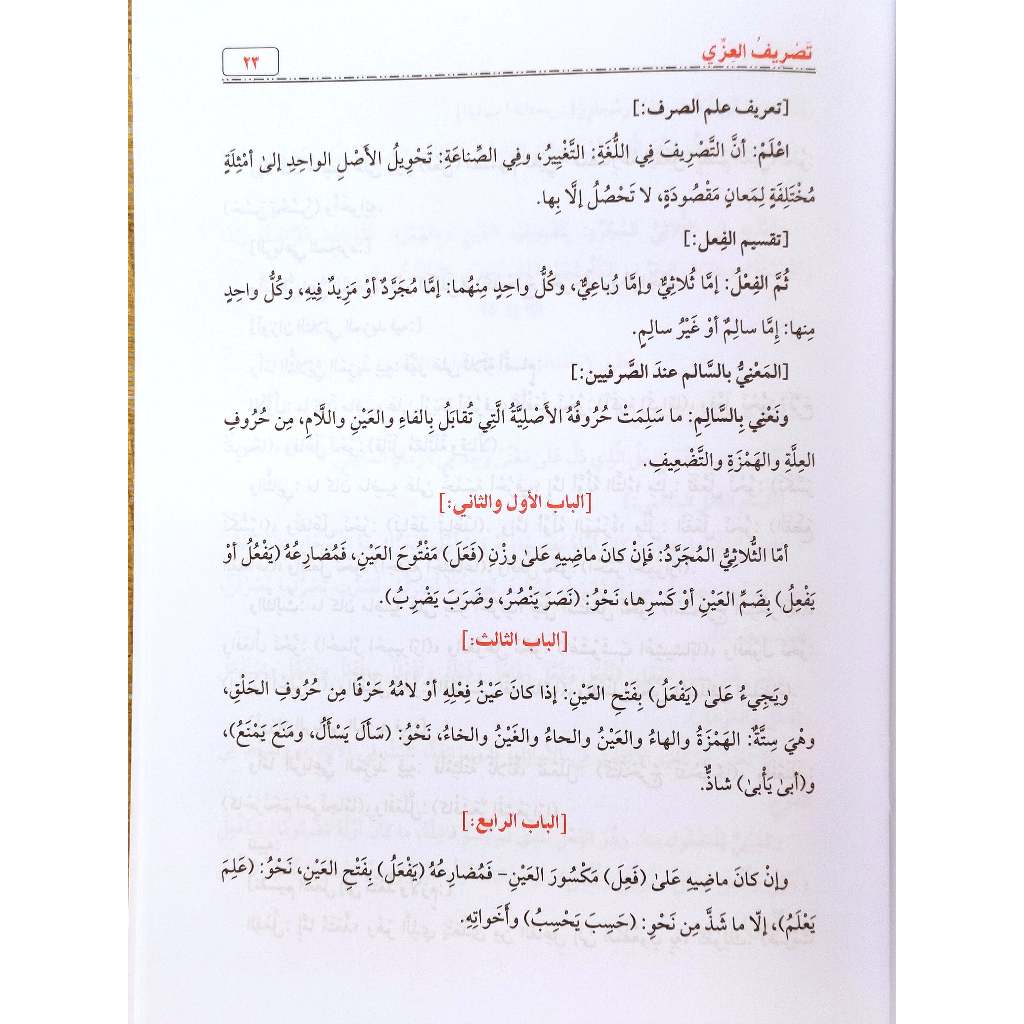 تَصْرِيفُ العِزِّي
٢٣
[تعريف علم الصرف:]
اعْلَمْ: أنَّ التَّصْرِيفَ فِي اللُّغَةِ: التَّغْيِيرُ، وفِي الصِّناعَةِ: تَحْوِيلُ الأَصْلِ الواحِدِ إلىٰ أمْثِلَةٍ
مُخْتَلِفَةٍ لِمَعانٍ مَقْصُودَةٍ، لا تَحْصُلُ إلَّا بِها.
[تقسيم الفِعل:]
ثُمَّ الفِعْلُ: إمَّا ثُلاثِيٌّ وإمَّا رُباعِيٌّ، وكُلُّ واحِدٍ مِنهُما: إمَّا مُجَرَّدٌ أوْ مَزِيدٌ فِيهِ، وكُلُّ واحِدٍ
مِنها: إِمَّا سالِمٌ أوْ غَيْرُ سالِمٍ.
[المَعْنِيُّ بالسَّالم عندَ الصَّرفيين:]
ونَعْنِي بِالسَّالِمِ: ما سَلِمَتْ حُرُوفُهُ الأَصْلِيَّةُ الَّتِي تُقابَلُ بِالفاءِ والعَيْنِ واللَّامِ، مِن حُرُوفِ
العِلَّةِ والهَمْزَةِ والتَّضْعِيفِ.
[الباب الأول والثاني:]
أمّا الثُّلاثِيُّ المُجَرَّدُ: فَإنْ كانَ ماضِيهِ عَلىٰ وزْنِ (فَعَلَ) مَفْتُوحَ العَيْنِ، فَمُضارِعُهُ (يَفْعُلُ أوْ
يَفْعِلُ) بِضَمِّ العَيْنِ أوْ كَسْرِها، نَحْوُ: (نَصَرَ يَنْصُرُ، وضَرَبَ يَضْرِبُ).
[الباب الثالث:]
ويَجِيءُ عَلىٰ (يَفْعَلُ) بِفَتْحِ العَيْنِ: إذا كانَ عَيْنُ فِعْلِهِ أوْ لامُهُ حَرْفًا مِن حُرُوفِ الحَلْقِ،
وهْيَ سِتَّةٌ: الهَمْزَةُ والهاءُ والعَيْنُ والحاءُ والغَيْنُ والخاءُ، نَحْوُ: (سَأَلَ يَسْأَلُ، ومَنَعَ يَمْنَعُ)،
و(أبىٰ يَأْبىٰ) شاذٌّ.
[الباب الرابع:]
وإنْ كانَ ماضِيهِ عَلىٰ (فَعِلَ) مَكْسُورَ العَيْنِ- فَمُضارِعُهُ (يَفْعَلُ) بِفَتْحِ العَيْنِ، نَحْوُ: (عَلِمَ
يَعْلَمُ)، إلّا ما شَذَّ مِن نَحْوِ: (حَسِبَ يَحْسِبُ) وأَخَواتِهِ.